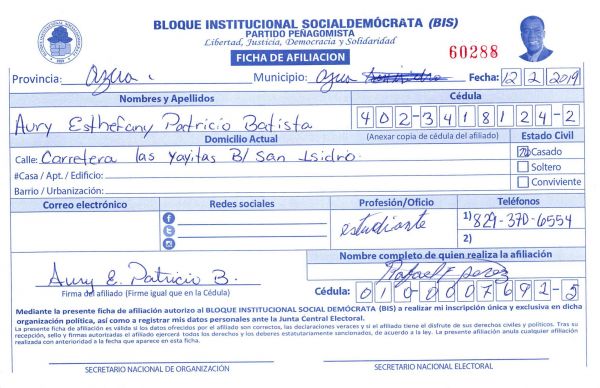 BLOQUE INSTITUCIONAL SOCIALDEMÓCRATA (BIS)
PARTIDO PEÑAGOMISTA
Libertad, Justicia, Democracia y Solidaridad
FICHA DE AFILIACION
60288
Provincia: Azua. Municipio: Azua Fecha: 12 2 2019
Nombres y Apellidos Cédula
Aury Esthefany Patricio Batista 402-3418124-2
Domicilio Actual (Anexar copia de cédula del afiliado) Estado Civil
Calle: Carretera las yayitas B/ San Isidro. Casado
#Casa / Apt. / Edificio: Soltero
Barrio / Urbanización: Conviviente
Correo electrónico Redes sociales Profesión/Oficio Teléfonos
estudiante 1) 829-370-6554
2)
Nombre completo de quien realiza la afiliación
Aury E. Patricio B. Rafael F perez
Firma del afiliado (Firme igual que en la Cédula) Cédula: 010-0007692-5
Mediante la presente ficha de afiliación autorizo al BLOQUE INSTITUCIONAL SOCIAL DEMÓCRATA (BIS) a realizar mi inscripción única y exclusiva en dicha
organización política, así como a registrar mis datos personales ante la Junta Central Electoral.
La presente ficha de afiliación es válida si los datos ofrecidos por el afiliado son correctos, las declaraciones veraces y si el afiliado tiene el disfrute de sus derechos civiles y políticos. Tras su
recepción, sello y firmas autorizadas el afiliado ejercerá todos los derechos y los deberes estatutariamente sancionados, de acuerdo a la ley. La presente afiliación anula cualquier afiliación
realizada con anterioridad a la fecha que aparece en esta ficha.
SECRETARIO NACIONAL DE ORGANIZACIÓN SECRETARIO NACIONAL ELECTORAL